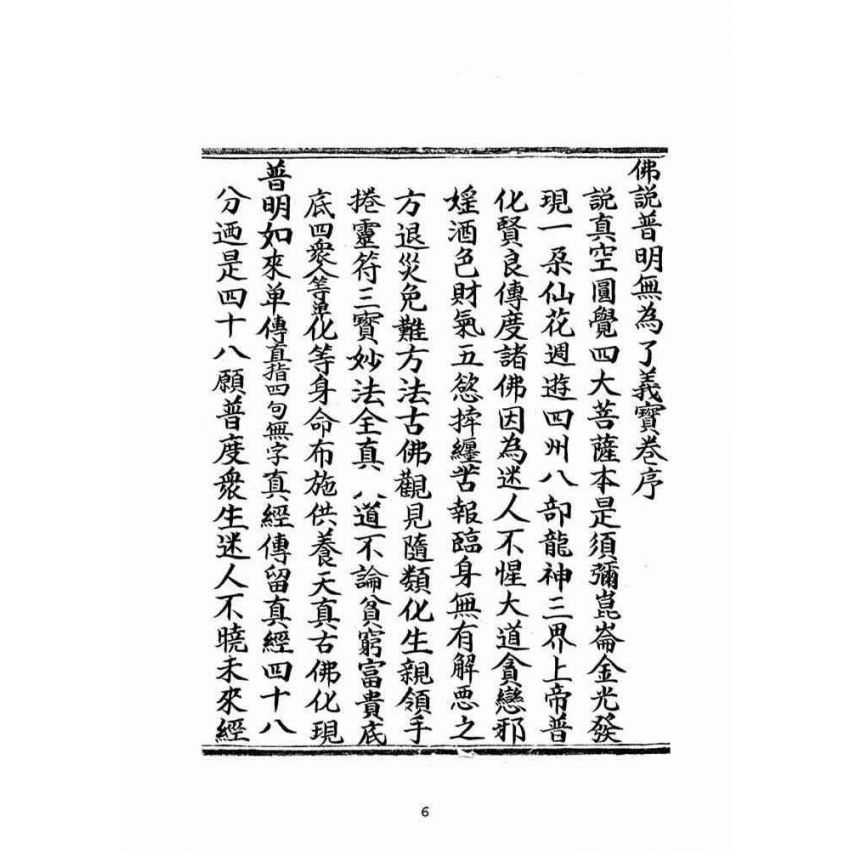 佛説普明無為了義寶卷序
説真空圓覺四大菩薩本是須彌崑崙金光發
現一朶仙花週遊四州八部龍神三界上帝普
化賢良傳度諸佛因為迷人不惺大道貪戀邪
婬酒色財氣五慾捽纏苦報臨身無有解悪之
方退災免難方法古佛觀見隨類化生親領手
捲靈符三寶妙法全真八道不論貧窮富貴底
底四衆人等单化等身命布施供養天真古佛化現
普明如來单傳直指四句無字真經傳留真經四十八
分迺是四十八願普度衆生迷人不曉未來經
6